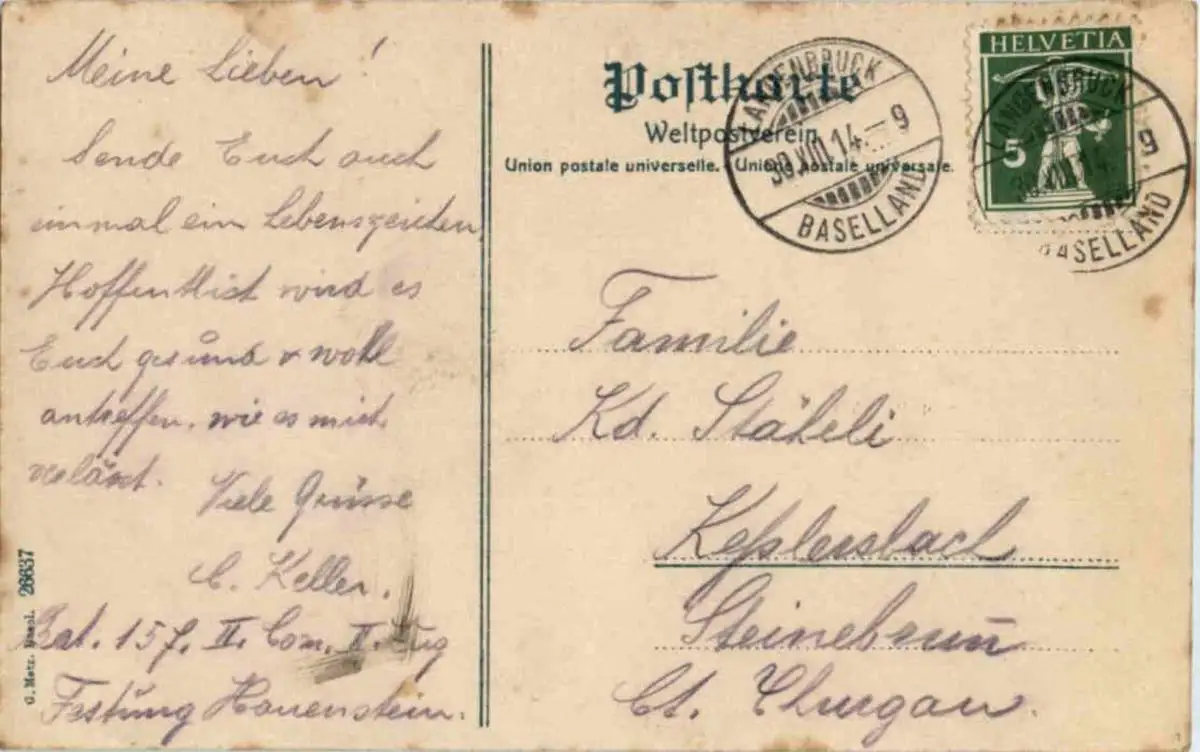 Meine Lieben!
Sende Euch auch
einmal ein Lebenszeichen,
Hoffentlich wird es
Euch gesund & wohl
antreffen, wie es mich
verläst.
Viele Grüsse
C. Keller.
Bat. 157. II. Com. II. Zug
Festung Hauenstein.
G. Metz, Basel. 26637
Postkarte
Weltpostverein
Union postale universelle. - Unione postale universale.
LANGENBRUCK
30.VIII.14.-9
BASELLAND
HELVETIA
5
LANGENBRUCK
30.VIII.14.-9
BASELLAND
Familie
Kd. Stäheli
Kesslersbach
Steinebrunn
Ct. Thurgau.